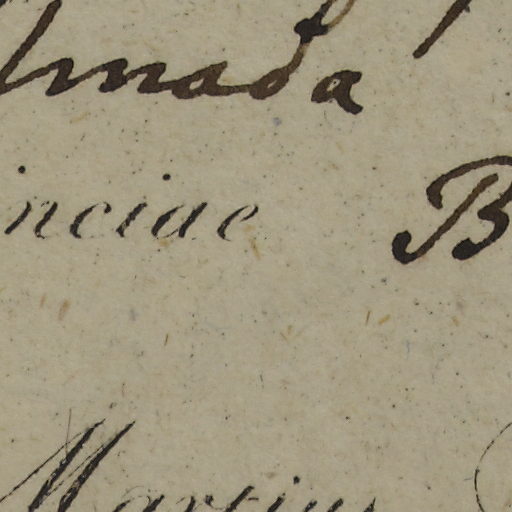 lmada
inciae B
Martius